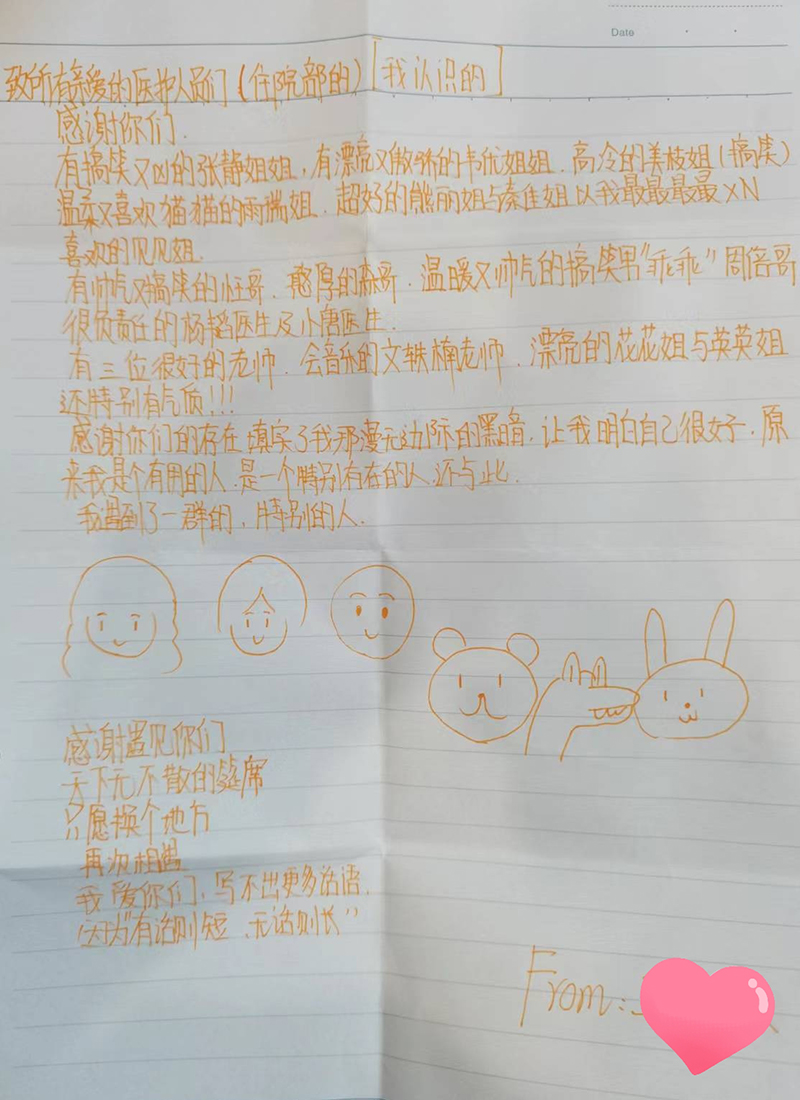 Date
致所有亲爱的医护人员们（住院部的）[我认识的]
感谢你们.
有搞笑又凶的张静姐姐，有漂亮又傲娇的韦优姐姐，高冷的美枝姐（搞笑）
温柔又喜欢猫猫的雨瑞姐，超好的熊丽姐与秦佳姐以我最最最最×N
喜欢的见见姐.
有帅气又搞笑的小王哥，憨厚的森哥，温暖又帅气的搞笑男“乖乖”周倍哥
很负责任的杨韬医生及小唐医生.
有三位很好的老师，会音乐的文轶楠老师，漂亮的花花姐与英英姐
还特别有气质!!!
感谢你们的存在填实了我那漫无边际的黑暗，让我明白自己很好，原
来我是个有用的人，是一个特别存在的人.还与此.
我遇到了一群的，特别的人.
感谢遇见你们
天下无不散的筵席
只愿换个地方
再次相遇
我爱你们，写不出更多话语，
因为“有话则短，无话则长”
From: